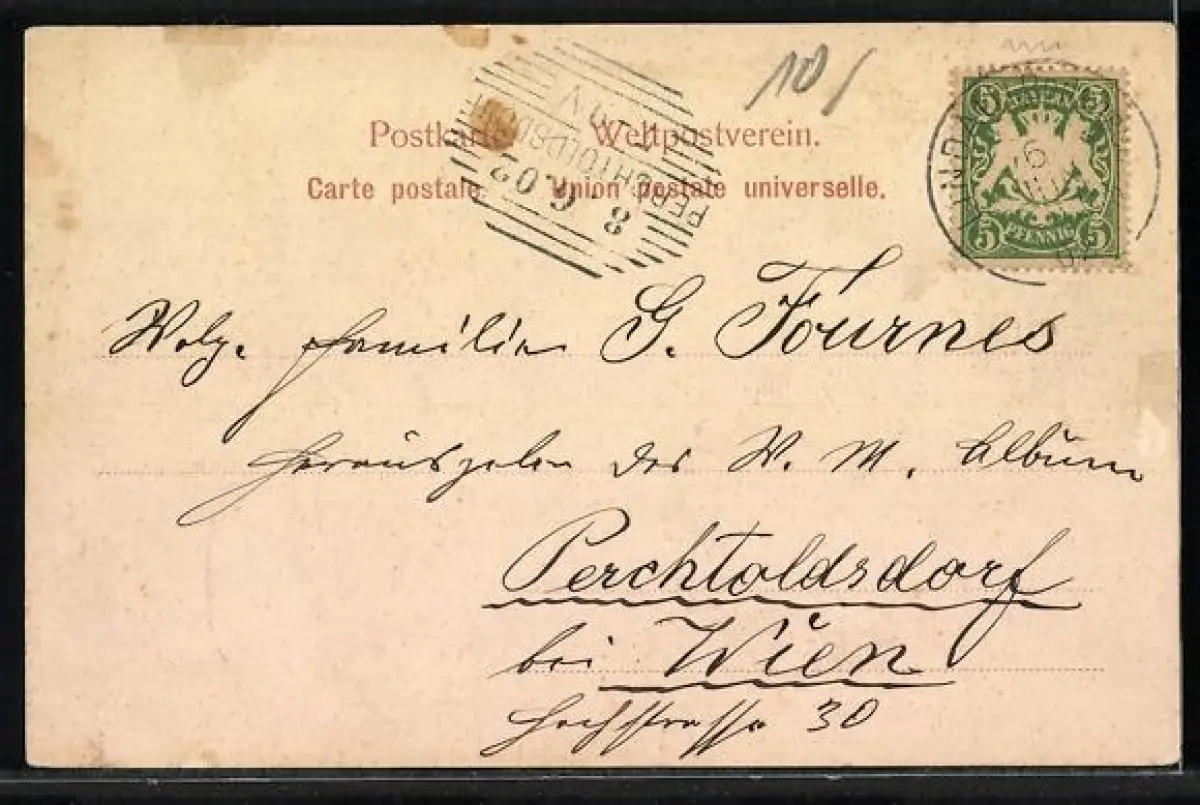 10/
Postkarte. Weltpostverein.
Carte postale. Union postale universelle.
PERCHTOLDSDORF
8.6.02
BAYERN
5 5
6
02
PFENNIG
5 5
Familie G. Fournes
Herausgeber des W. M. Album
Perchtoldsdorf
bei Wien
Hochstrasse 30